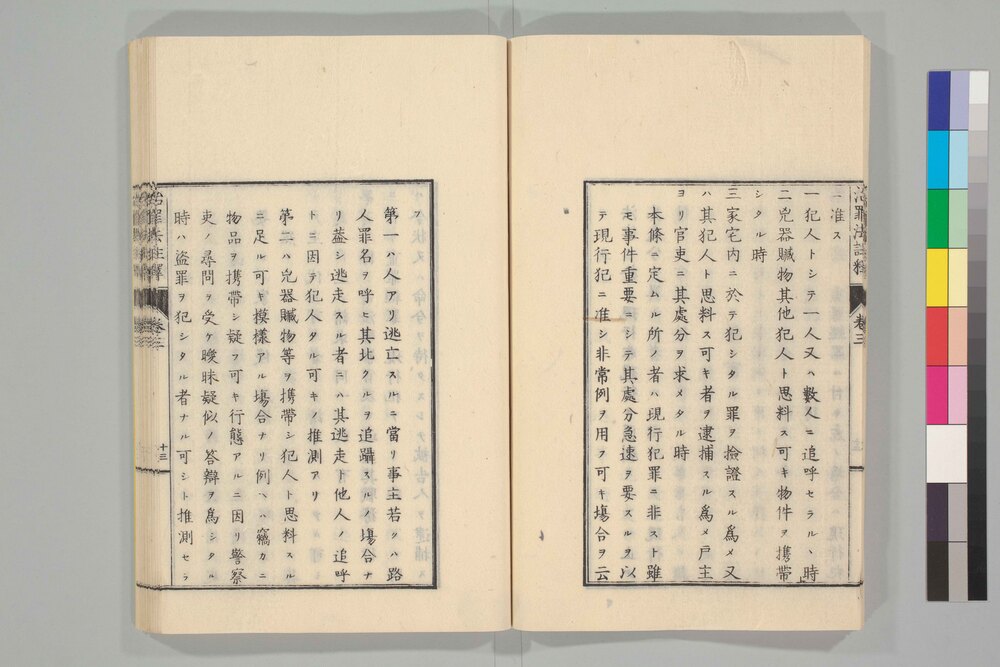 治罪法註釋 卷三
ニ准ス
一犯人トシテ一人又ハ數人ニ追呼セラルヽ時
二兇器贓物其他犯人ト思料ス可キ物件ヲ携帶
シタル時
三家宅内ニ於テ犯シタル罪ヲ撿證スル爲メ又
ハ其犯人ト思料ス可キ者ヲ逮捕スル爲メ戸主
ヨリ官吏ニ其處分ヲ求メタル時
本條ニ定ムル所ノ者ハ現行犯罪ニ非スト雖
モ事件重要ニシテ其處分急速ヲ要スルヲ以
テ現行犯ニ准シ非常例ヲ用フ可キ塲合ヲ云
フ
第一ハ人アリ逃亡スルニ當リ事主若クハ路
人罪名ヲ呼ヒ其北クルヲ追躡スルノ塲合ナ
リ葢シ逃走スル者ニ向ハ其逃走ト他人ノ追呼
トニ因テ犯人タル可キノ推測アリ
第二ハ兇器贓物等ヲ携帶シ犯人ト思料スル
ニ足ル可キ模樣アル塲合ナリ例ヘハ竊カニ
物品ヲ携帶シ疑フ可キ行態アルニ因リ警察
吏ノ尋問ヲ受ケ曖昧疑似ノ答辯ヲ爲シタル
時ハ盜罪ヲ犯シタル者ナル可シト推測セラ
治罪法註釋 卷三 十三